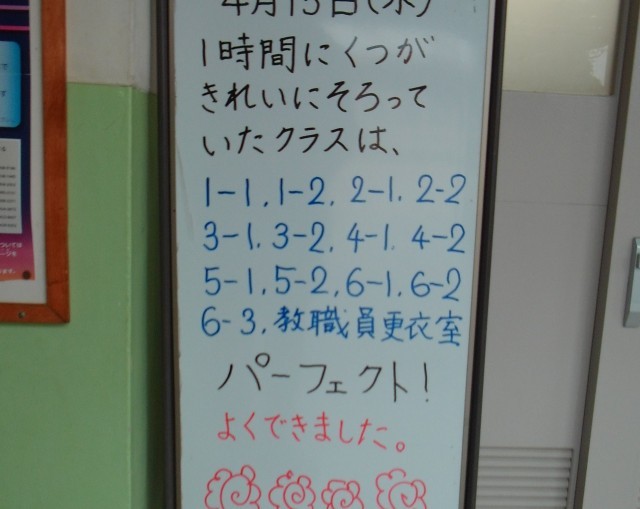 4月15日(水)
1時間にくつが
きれいにそろって
いたクラスは、
1-1, 1-2, 2-1, 2-2
3-1, 3-2, 4-1, 4-2
5-1, 5-2, 6-1, 6-2
6-3, 教職員更衣室
パーフェクト!
よくできました。